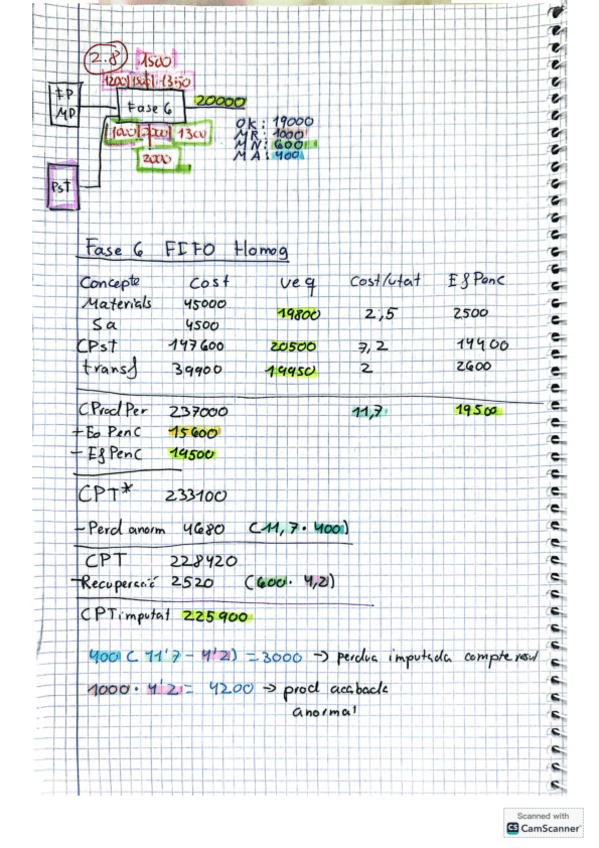 2.8
1500
1200 1500 1350
EP
MP
Fase 6
20000
1000 2000 1300
2000
OK: 19000
MR: 1000
MN: 600
MA: 400
Pst
Fase 6 FIFO Homog
Concepte Cost Ueq Cost/utat EfPenc
Materials 45000 19800 2,5 2500
Sa 4500
CPst 147600 20500 7,2 14400
transf 39900 19950 2 2600
CProdPer 237000 11,7 19500
+Eo Penc 15600
-EfPenc 19500
CPT* 233100
-Perd anorm 4680 (11,7 · 400)
CPT 228420
-Recuperació 2520 (600 · 4,2)
CPTimputat 225900
400 (11'7 - 4'2) = 3000 → perdua imputada compte resul
1000 · 4'2 = 4200 → prod acabada
anormal
Scanned with
CS CamScanner